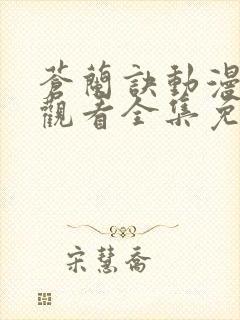 蒼蘭訣動漫
觀看全集免
宋慧喬